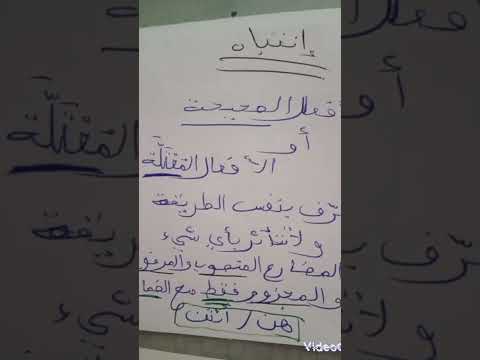 إنتباه
أفعال الصحيحة
أو
الأفعال المعْتَلَّة
رّف بنفس الطريقة
ولا تتأثر بأي شيء
المضارع المنصوب والمرفو
و المجزوم فقط مع الضما
هن / أنتن
Video